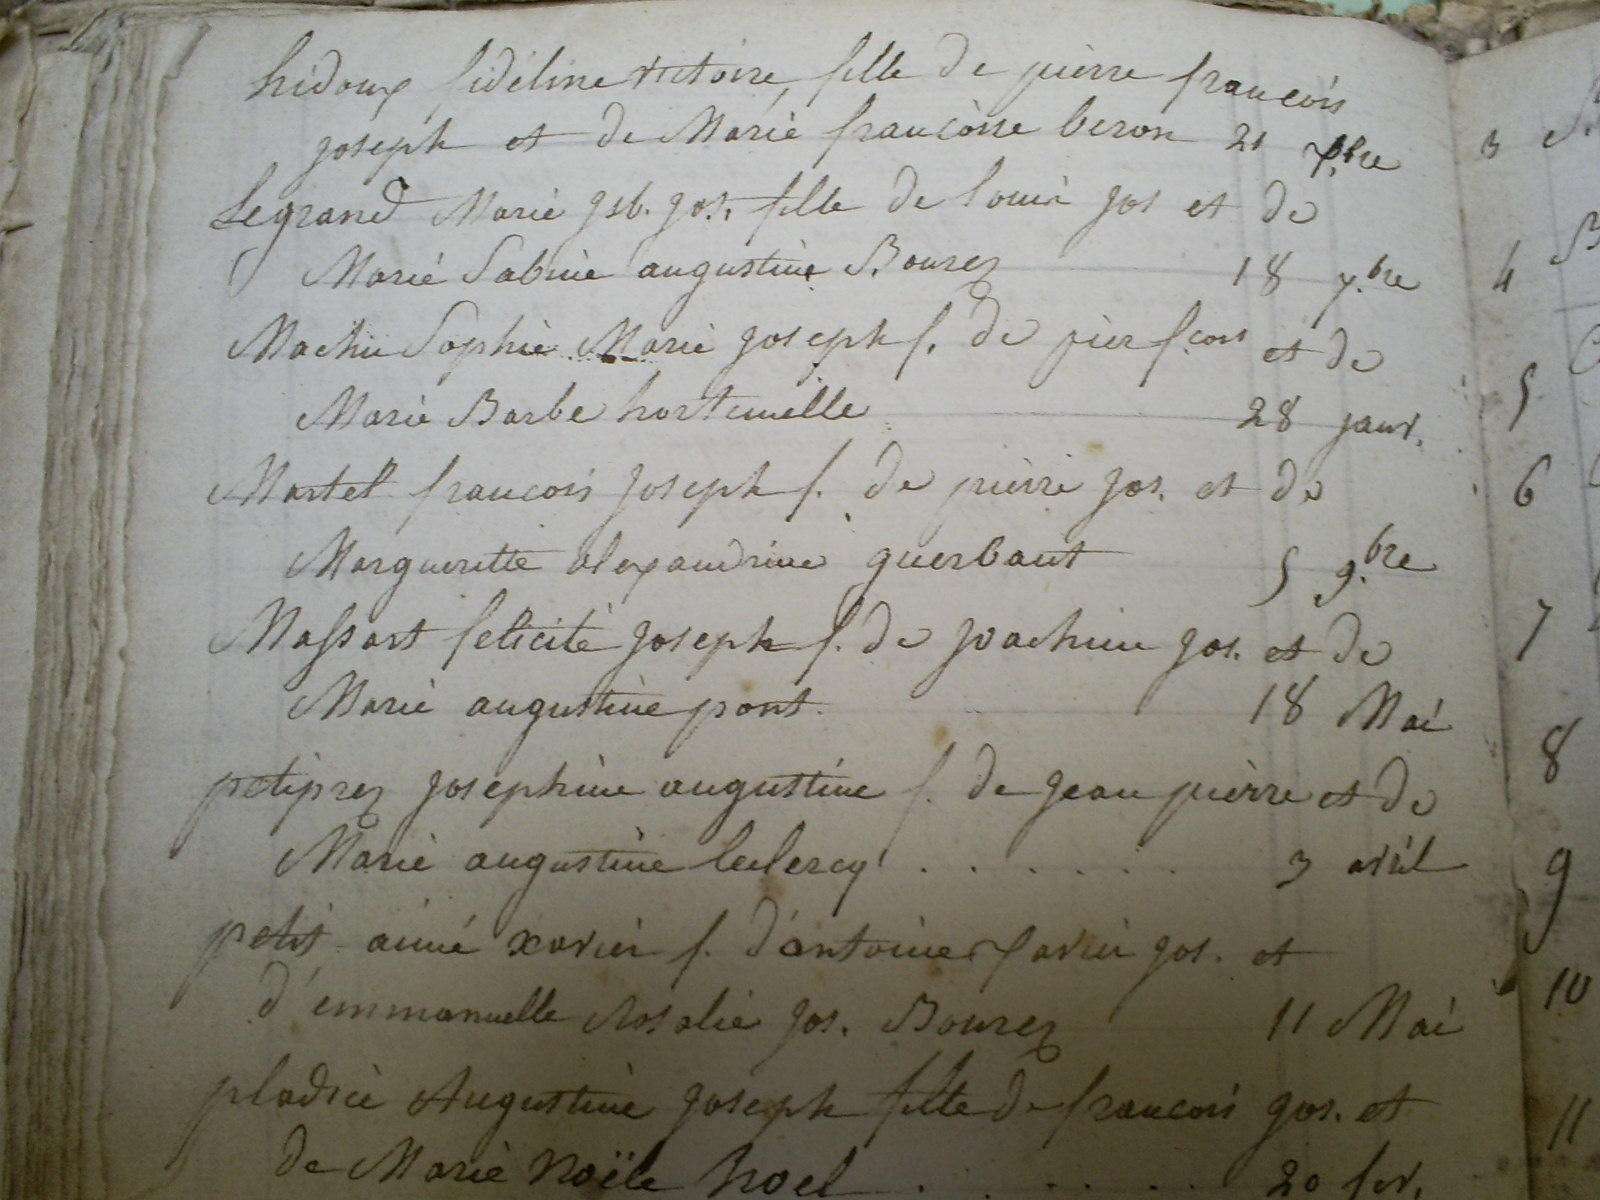 hidoux fidéline victoire, fille de pièrre françois
joseph et de Marie françoise beron 21 7.bre
Legrand Marie gsb. jos. fille de louis jos et de
Marie Sabine augustine Bourez 18 7.bre
Machu Sophie Marie joseph f. de pier fçois et de
Marie Barbe hortemelle 28 janv.
Martel françois joseph f. de pièrre jos. et de
Margueritte alexandrine querbant 5 9.bre
Massart felicité joseph f. de joachim jos. et de
Marie augustine pont. 18 Mai
petiprez josephine augustine f. de jean pièrre et de
Marie augustine leclercq . . . . . . 3 avril
petit aimé xavier f. d'antoine xavier jos. et
d'emmanuelle Rosalie jos. Bourez 11 Mai
pladiee Augustine joseph fille de françois jos. et
de Marie Noële hoel . . . . . . 20 fév.
3
4
5
6
7
8
9
10
11